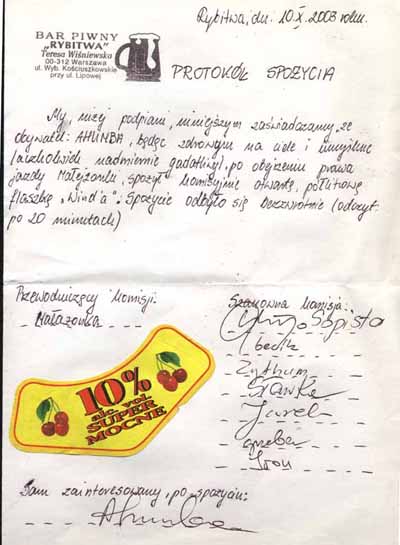 Rybitwa, dn. 10.X.2003 roku.
BAR PIWNY
"RYBITWA"
Teresa Wiśniewska
00-312 Warszawa
ul. Wyb. Kościuszkowskie
przy ul. Lipowej
PROTOKÓŁ SPOŻYCIA
My, niżej podpisani, niniejszym zaświadczamy, że
obywatel: AHUNBA, będąc zdrowym na ciele i umyśle
(aczkolwiek nadmiernie gadatliwy), po obejrzeniu prawa
jazdy Małejżonki, spożył komisyjnie otwartą, półlitrową
flaszkę „Wind'a". Spożycie odbyło się bezzwrotnie (odczyt
po 20 minutach)
Przewodniczący komisji:
Małażonka
Szanowna komisja:
Sopista
becik
Zythum
Sławka
Jurel
10%
alc. vol.
SUPER
MOCNE
Sam zainteresowany, po spożyciu:
Ahunba